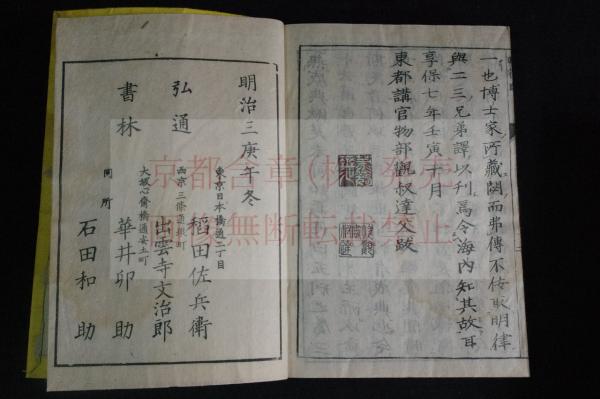 一也博士家所藏閟而弗傳不佞取明律
與二三兄弟譯以刋焉令海內知其故耳
享保七年壬寅十月
東都講官物部觀叔達父跋
明治三庚午冬
弘通
書林
東京日本橋通二丁目
稻田佐兵衛
西京三條通
出雲寺文治郎
大坂心齋橋通安土町
華井卯助
同所
石田和助
京都含章(株)発売
無断転載禁止